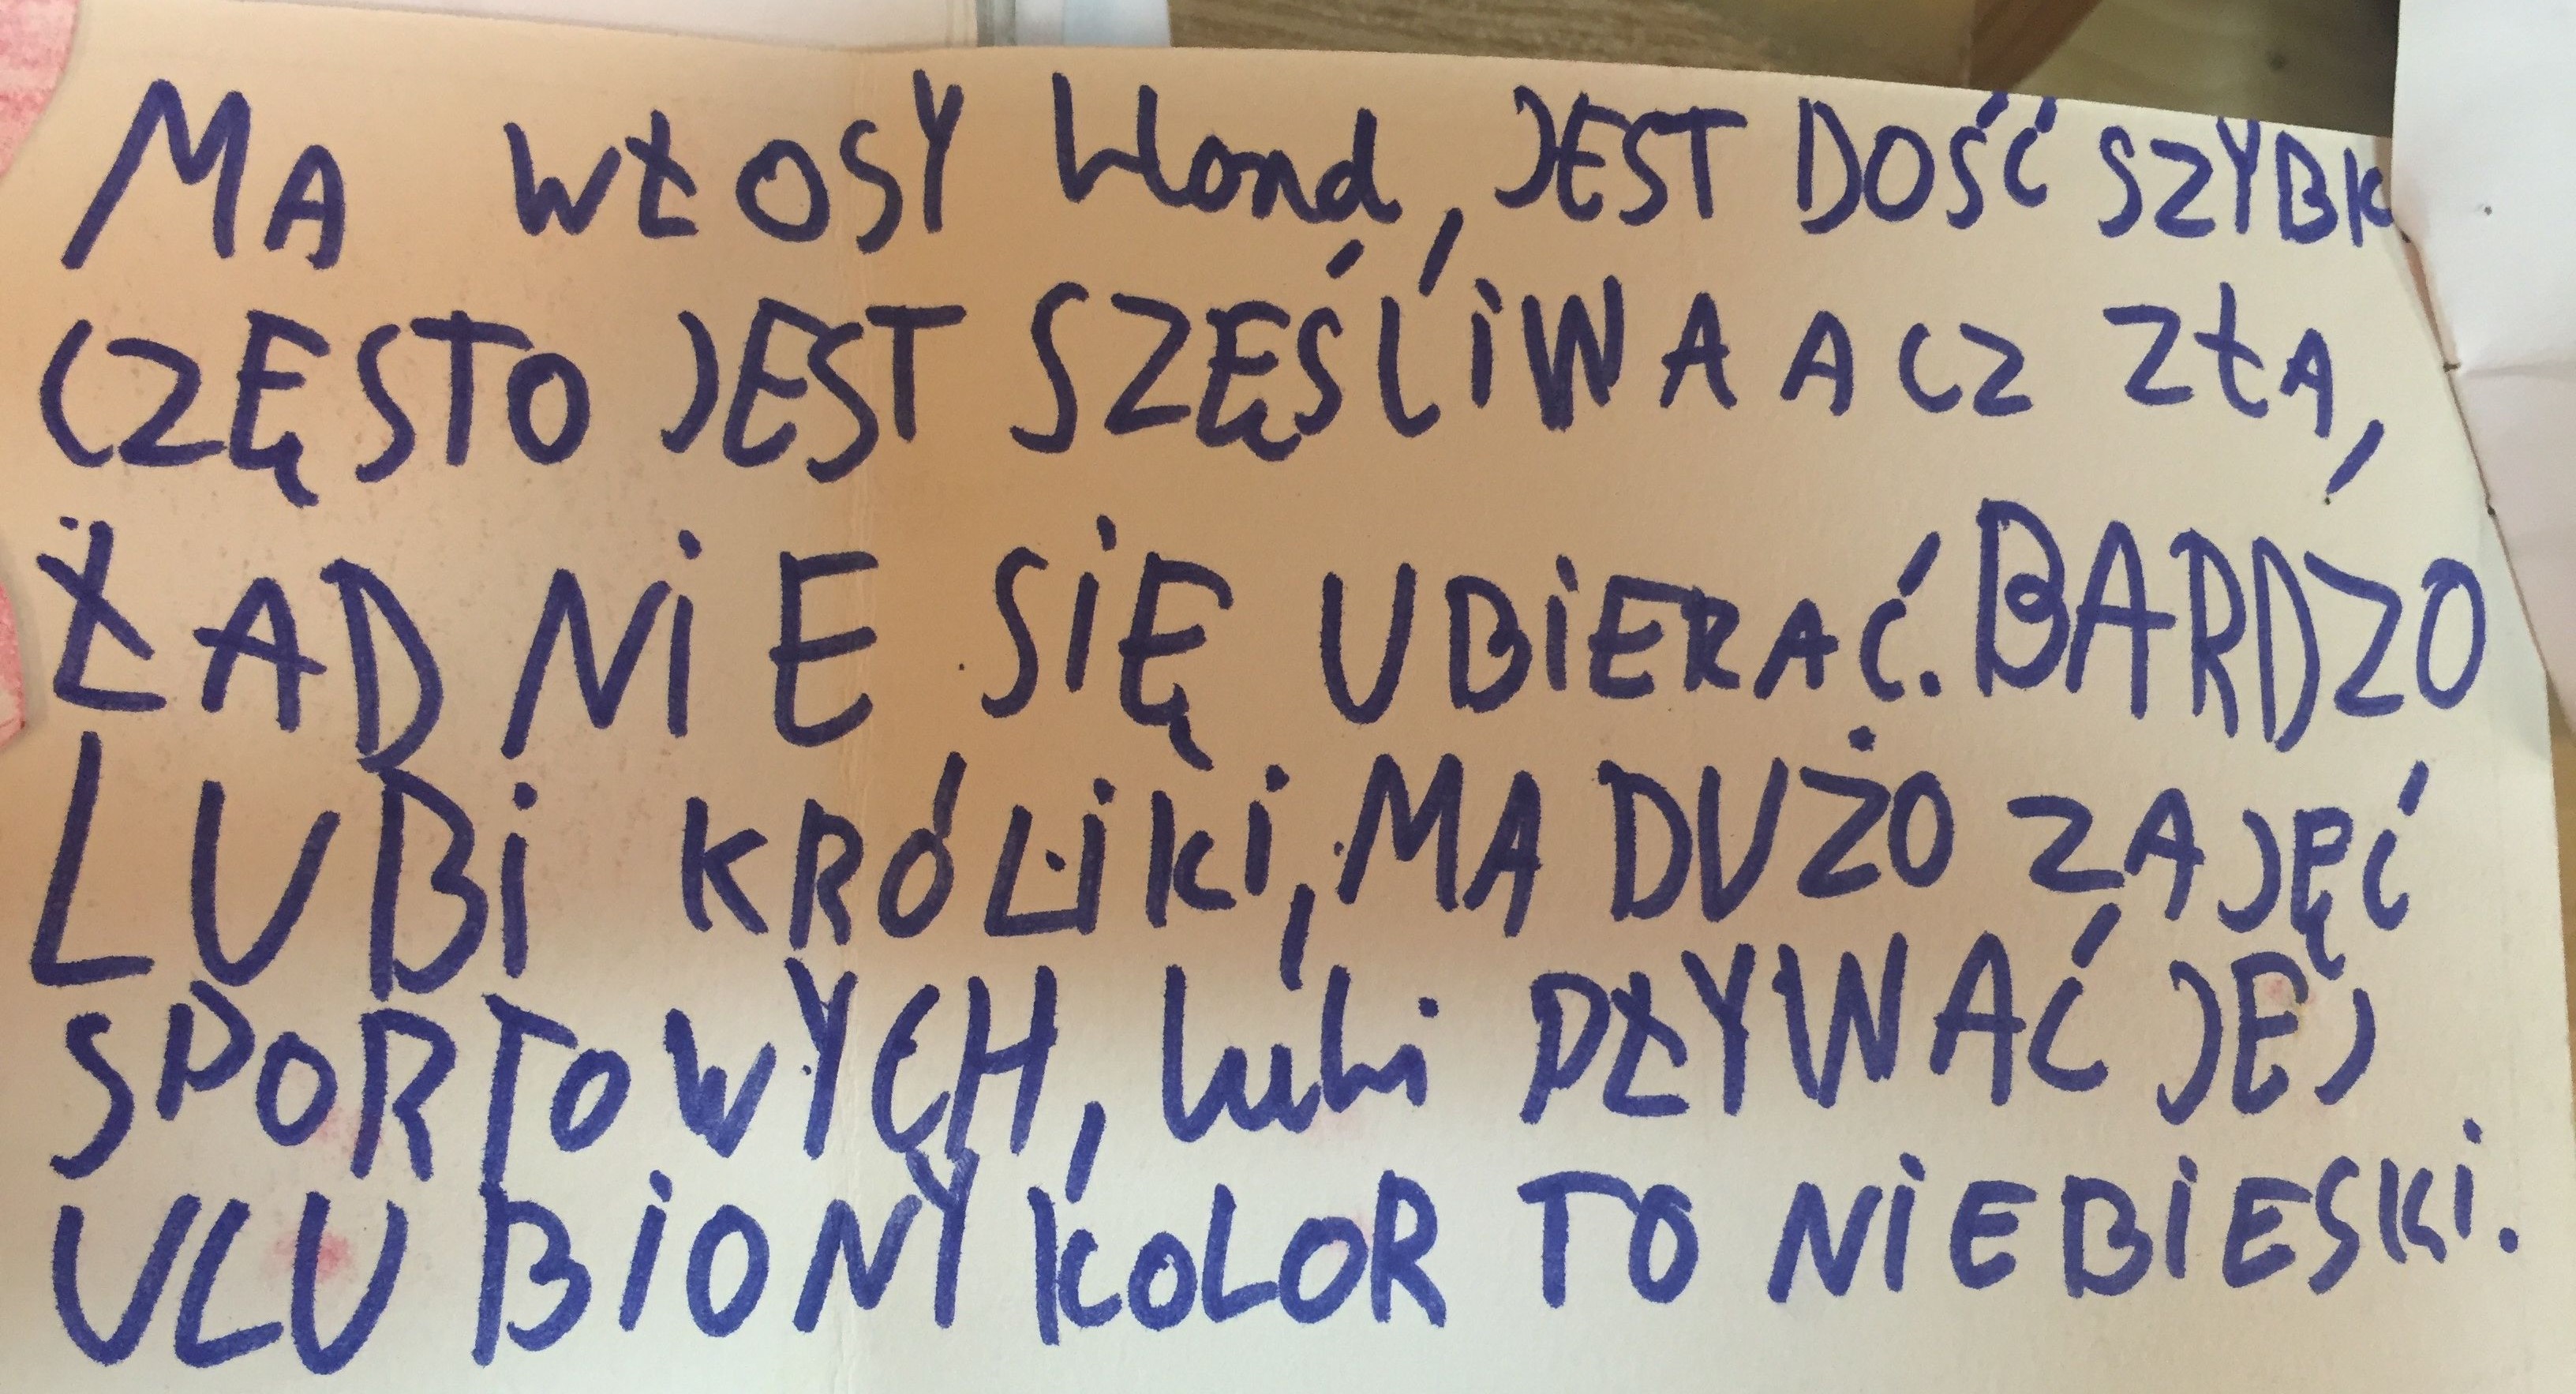 MA WŁOSY blond, JEST DOŚĆ SZYBK
CZĘSTO JEST SZĘŚLIWA A CZ ZŁA,
ŁADNIE SIĘ UBIERAĆ. BARDZO
LUBI KRÓLIKI, MA DUŻO ZAJĘĆ
SPORTOWYCH, lubi PŁYWAĆ JEJ
ULUBIONY KOLOR TO NIEBIESKI.